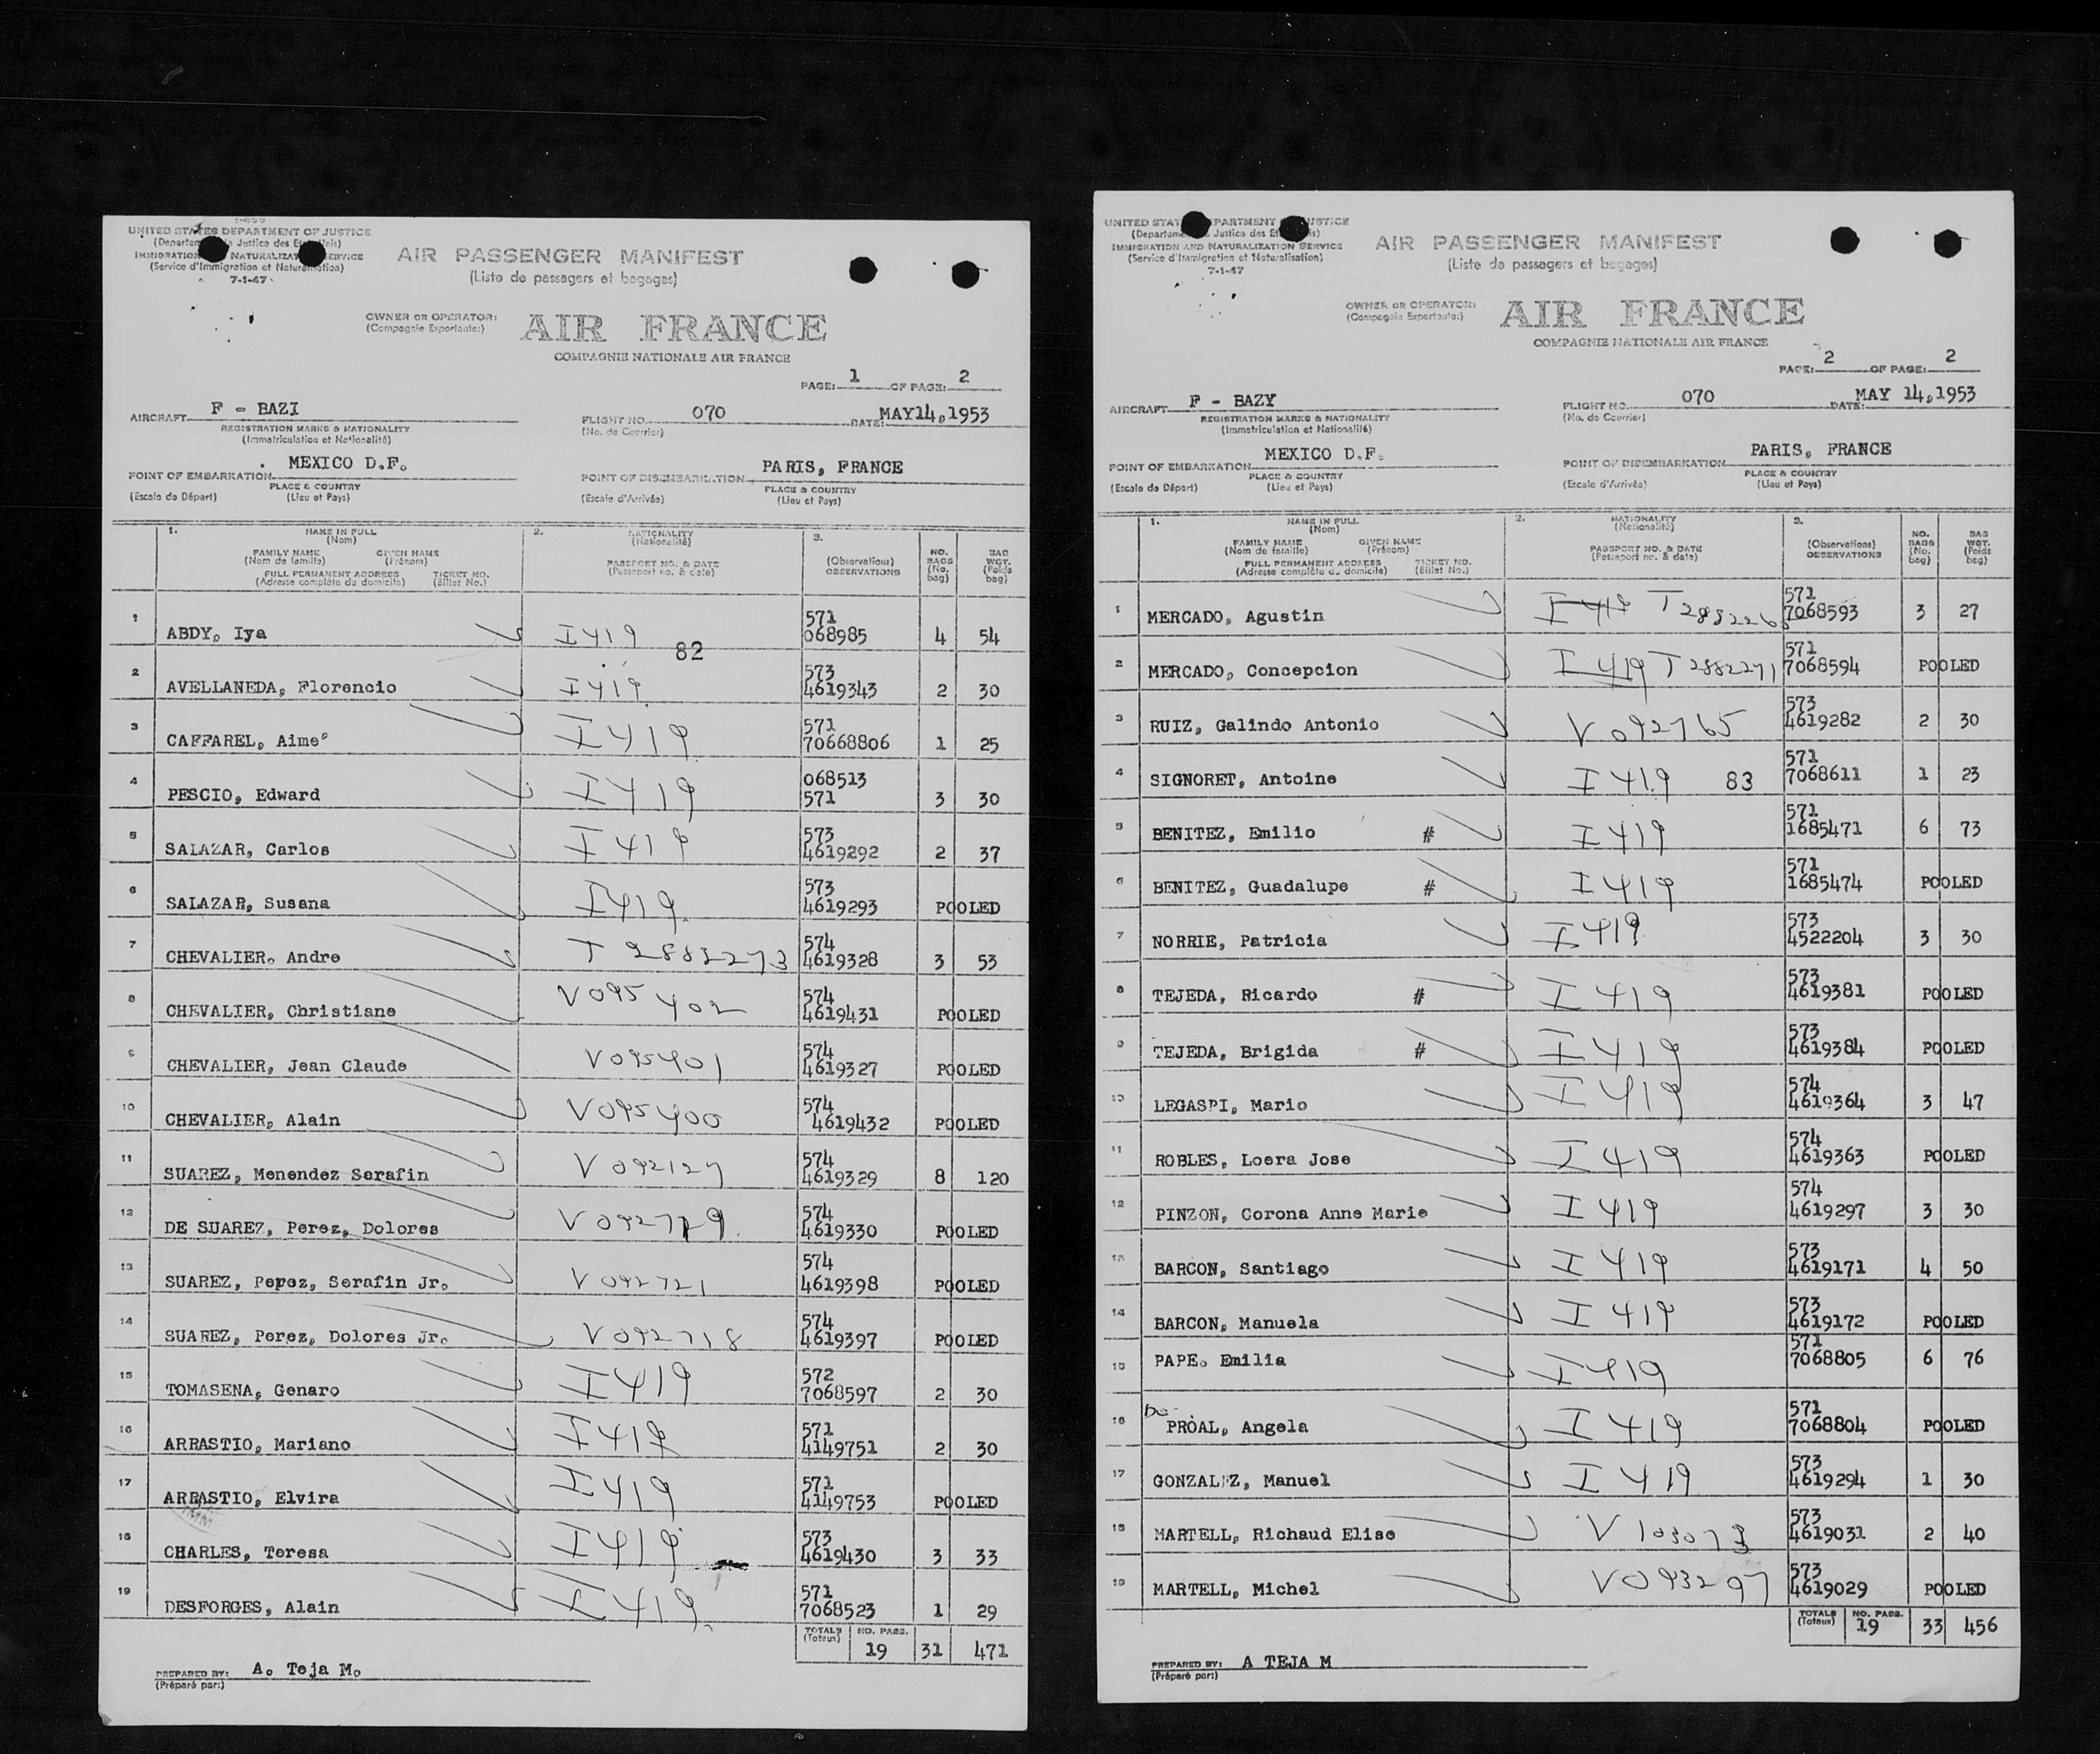 UNITED STATES DEPARTMENT OF JUSTICE
IMMIGRATION NATURALIZATION SERVICE
(Service d'Immigration et Naturalisation)
7-1-47
AIR PASSENGER MANIFEST
(Liste de passagers et bagages)
OWNER OR OPERATOR:
(Compagnie Exportante:)
AIR FRANCE
COMPAGNIE NATIONALE AIR FRANCE
PAGE: 1 OF PAGE: 2
AIRCRAFT F - BAZI FLIGHT NO. 070 DATE: MAY14,1953
REGISTRATION MARKS & NATIONALITY (No. de Courrier)
(Immatriculation et Nationalité)
POINT OF EMBARKATION MEXICO D.F. POINT OF DISEMBARKATION PARIS, FRANCE
PLACE & COUNTRY PLACE & COUNTRY
(Escale de Départ) (Lieu et Pays) (Escale d'Arrivée) (Lieu et Pays)
1. NAME IN FULL 2. NATIONALITY 3.
(Nom) (Nationalité)
FAMILY NAME GIVEN NAME PASSPORT NO. & DATE (Observations) NO. BAGS (No. bag) BAG WGT. (Poids bag)
(Nom de famille) (Prénom) (Passeport no. & date) OBSERVATIONS
FULL PERMANENT ADDRESS TICKET NO.
(Adresse complète du domicile) (Billet No.)
1 ABDY, Iya I 419 82 571 068985 4 54
2 AVELLANEDA, Florencio I 419 573 4619343 2 30
3 CAFFAREL, Aime I 419 571 70668806 1 25
4 PESCIO, Edward I 419 068513 571 3 30
5 SALAZAR, Carlos I 419 573 4619292 2 37
6 SALAZAR, Susana I 419 573 4619293 POOLED
7 CHEVALIER. Andre T 2882273 574 4619328 3 53
8 CHEVALIER, Christiane V095402 574 4619431 POOLED
9 CHEVALIER, Jean Claude V095401 574 4619327 POOLED
10 CHEVALIER, Alain V095400 574 4619432 POOLED
11 SUAREZ, Menendez Serafin V092127 574 4619329 8 120
12 DE SUAREZ, Perez, Dolores 574 4619330 POOLED
13 SUAREZ, Perez, Serafin Jr. V092721 574 4619398 POOLED
14 SUAREZ, Perez, Dolores Jr. V092718 574 4619397 POOLED
15 TOMASENA, Genaro I 419 572 7068597 2 30
16 ARRASTIO, Mariano I 419 571 4149751 2 30
17 ARRASTIO, Elvira I 419 571 4149753 POOLED
18 CHARLES, Teresa I 419 573 4619430 3 33
19 DESFORGES, Alain I 419 571 7068523 1 29
TOTALS (Totaux) NO. PASS. 19 31 471
PREPARED BY: A. Teja M.
(Préparé par:)
IMMIGRATION AND NATURALIZATION SERVICE
(Service d'Immigration et Naturalisation)
7-1-47
AIR PASSENGER MANIFEST
(Liste de passagers et bagages)
OWNER OR OPERATOR:
(Compagnie Exportante:)
AIR FRANCE
COMPAGNIE NATIONALE AIR FRANCE
PAGE: 2 OF PAGE: 2
AIRCRAFT F - BAZY FLIGHT NO. 070 DATE: MAY 14,1953
REGISTRATION MARKS & NATIONALITY (No. de Courrier)
(Immatriculation et Nationalité)
POINT OF EMBARKATION MEXICO D.F. POINT OF DISEMBARKATION PARIS, FRANCE
PLACE & COUNTRY PLACE & COUNTRY
(Escale de Départ) (Lieu et Pays) (Escale d'Arrivée) (Lieu et Pays)
1. NAME IN FULL 2. NATIONALITY 3.
(Nom) (Nationalité)
FAMILY NAME GIVEN NAME PASSPORT NO. & DATE (Observations) NO. BAGS (No. bag) BAG WGT. (Poids bag)
(Nom de famille) (Prénom) (Passeport no. & date) OBSERVATIONS
FULL PERMANENT ADDRESS TICKET NO.
(Adresse complète du domicile) (Billet No.)
1 MERCADO, Agustin I 419 571 7068593 3 27
2 MERCADO, Concepcion I 419 T 2882271 571 7068594 POOLED
3 RUIZ, Galindo Antonio V 092765 573 4619282 2 30
4 SIGNORET, Antoine I 419 83 571 7068611 1 23
5 BENITEZ, Emilio # I 419 571 1685471 6 73
6 BENITEZ, Guadalupe # I 419 571 1685474 POOLED
7 NORRIE, Patricia I 419 573 4522204 3 30
8 TEJEDA, Ricardo # I 419 573 4619381 POOLED
9 TEJEDA, Brigida # I 419 573 4619384 POOLED
10 LEGASPI, Mario I 419 574 4619364 3 47
11 ROBLES, Loera Jose I 419 574 4619363 POOLED
12 PINZON, Corona Anne Marie I 419 574 4619297 3 30
13 BARCON, Santiago I 419 573 4619171 4 50
14 BARCON, Manuela I 419 573 4619172 POOLED
15 PAPE. Emilia I 419 571 7068805 6 76
16 De PROAL, Angela I 419 571 7068804 POOLED
17 GONZALEZ, Manuel I 419 573 4619294 1 30
18 MARTELL, Richaud Elise V 103073 573 4619031 2 40
19 MARTELL, Michel V093297 573 4619029 POOLED
TOTALS (Totaux) NO. PASS. 19 33 456
PREPARED BY: A TEJA M
(Préparé par:)